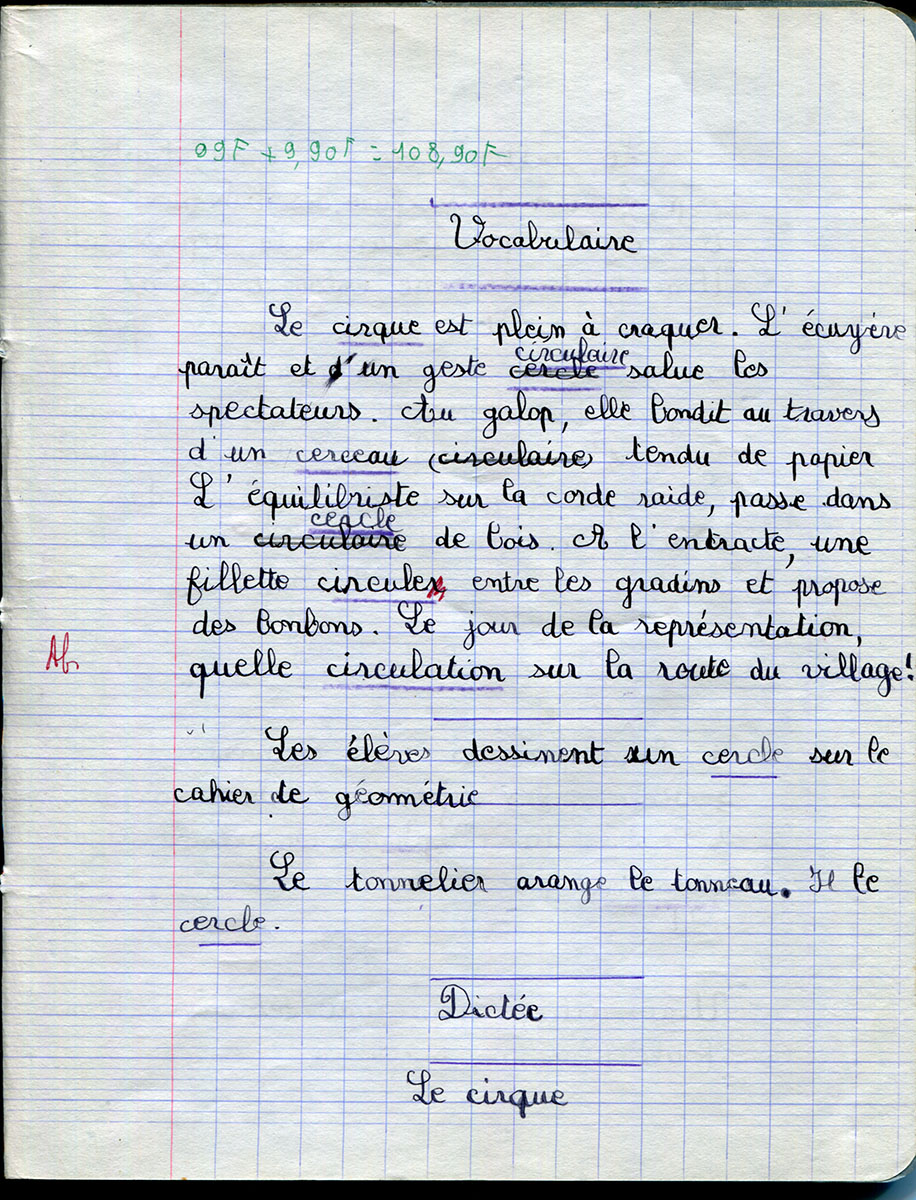 99F + 9,90F = 108,90F
Vocabulaire
Le cirque est plein à craquer. L'écuyère
circulaire
paraît et d'un geste cercle salue les
spectateurs. Au galop, elle bondit au travers
d'un cerceau (circulaire) tendu de papier
L'équilibriste sur la corde raide, passe dans
cercle
un circulaire de bois. A l'entracte, une
fillette circule entre les gradins et propose
des bonbons. Le jour de la représentation,
Ab
quelle circulation sur la route du village!
Les élèves dessinent un cercle sur le
cahier de géométrie
Le tonnelier arange le tonneau. Il le
cercle.
Dictée
Le cirque